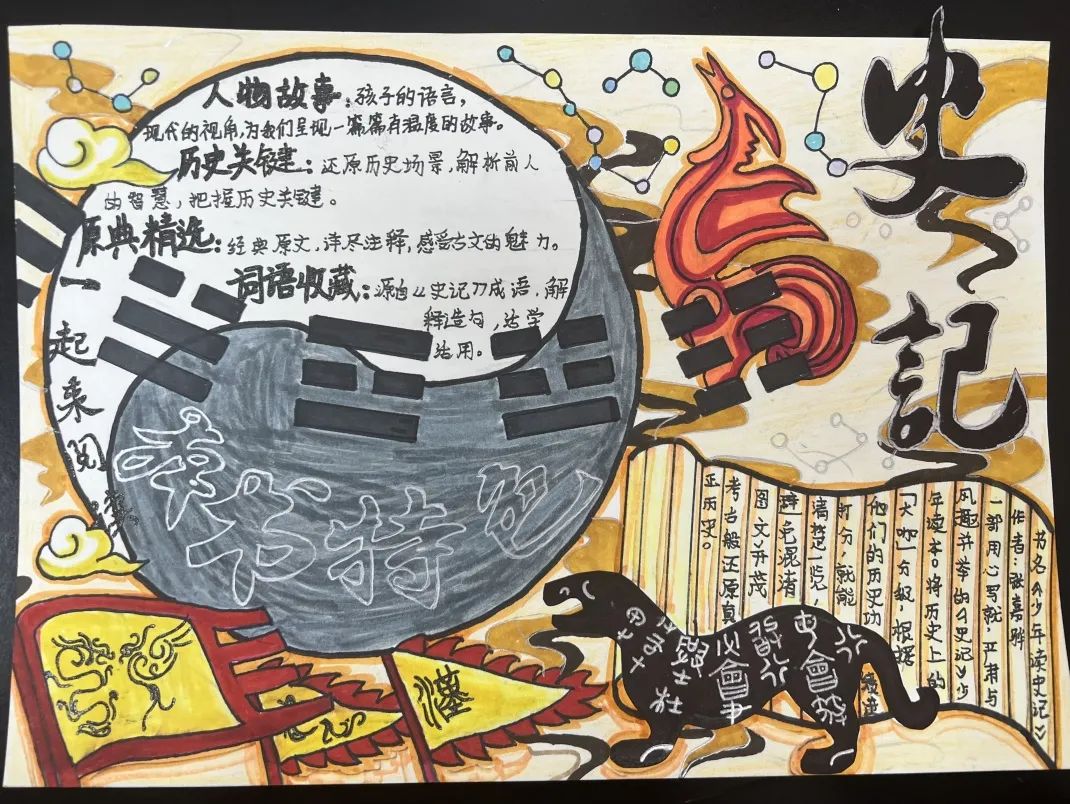 史記
人物故事：孩子的语言，
现代的视角，为我们呈现一篇篇有温度的故事。
历史关键：还原历史场景，解析前人
的智慧，把握历史关键。
原典精选：经典原文，详尽注释，感受古文的魅力。
词语收藏：源自《史记》成语，解
释造句，活学
活用。
一起来阅读
读书特
书名《少年读史记》
作者：张嘉骅
一部用心写就，严肃与
风趣并举的《史记》少
年读本。将历史上的
「大咖」分级，根据
他们的历史功
清楚一览，
避免混淆
图文并茂
考古般还原真
正历史。
漢
甲
杜
必會事
會